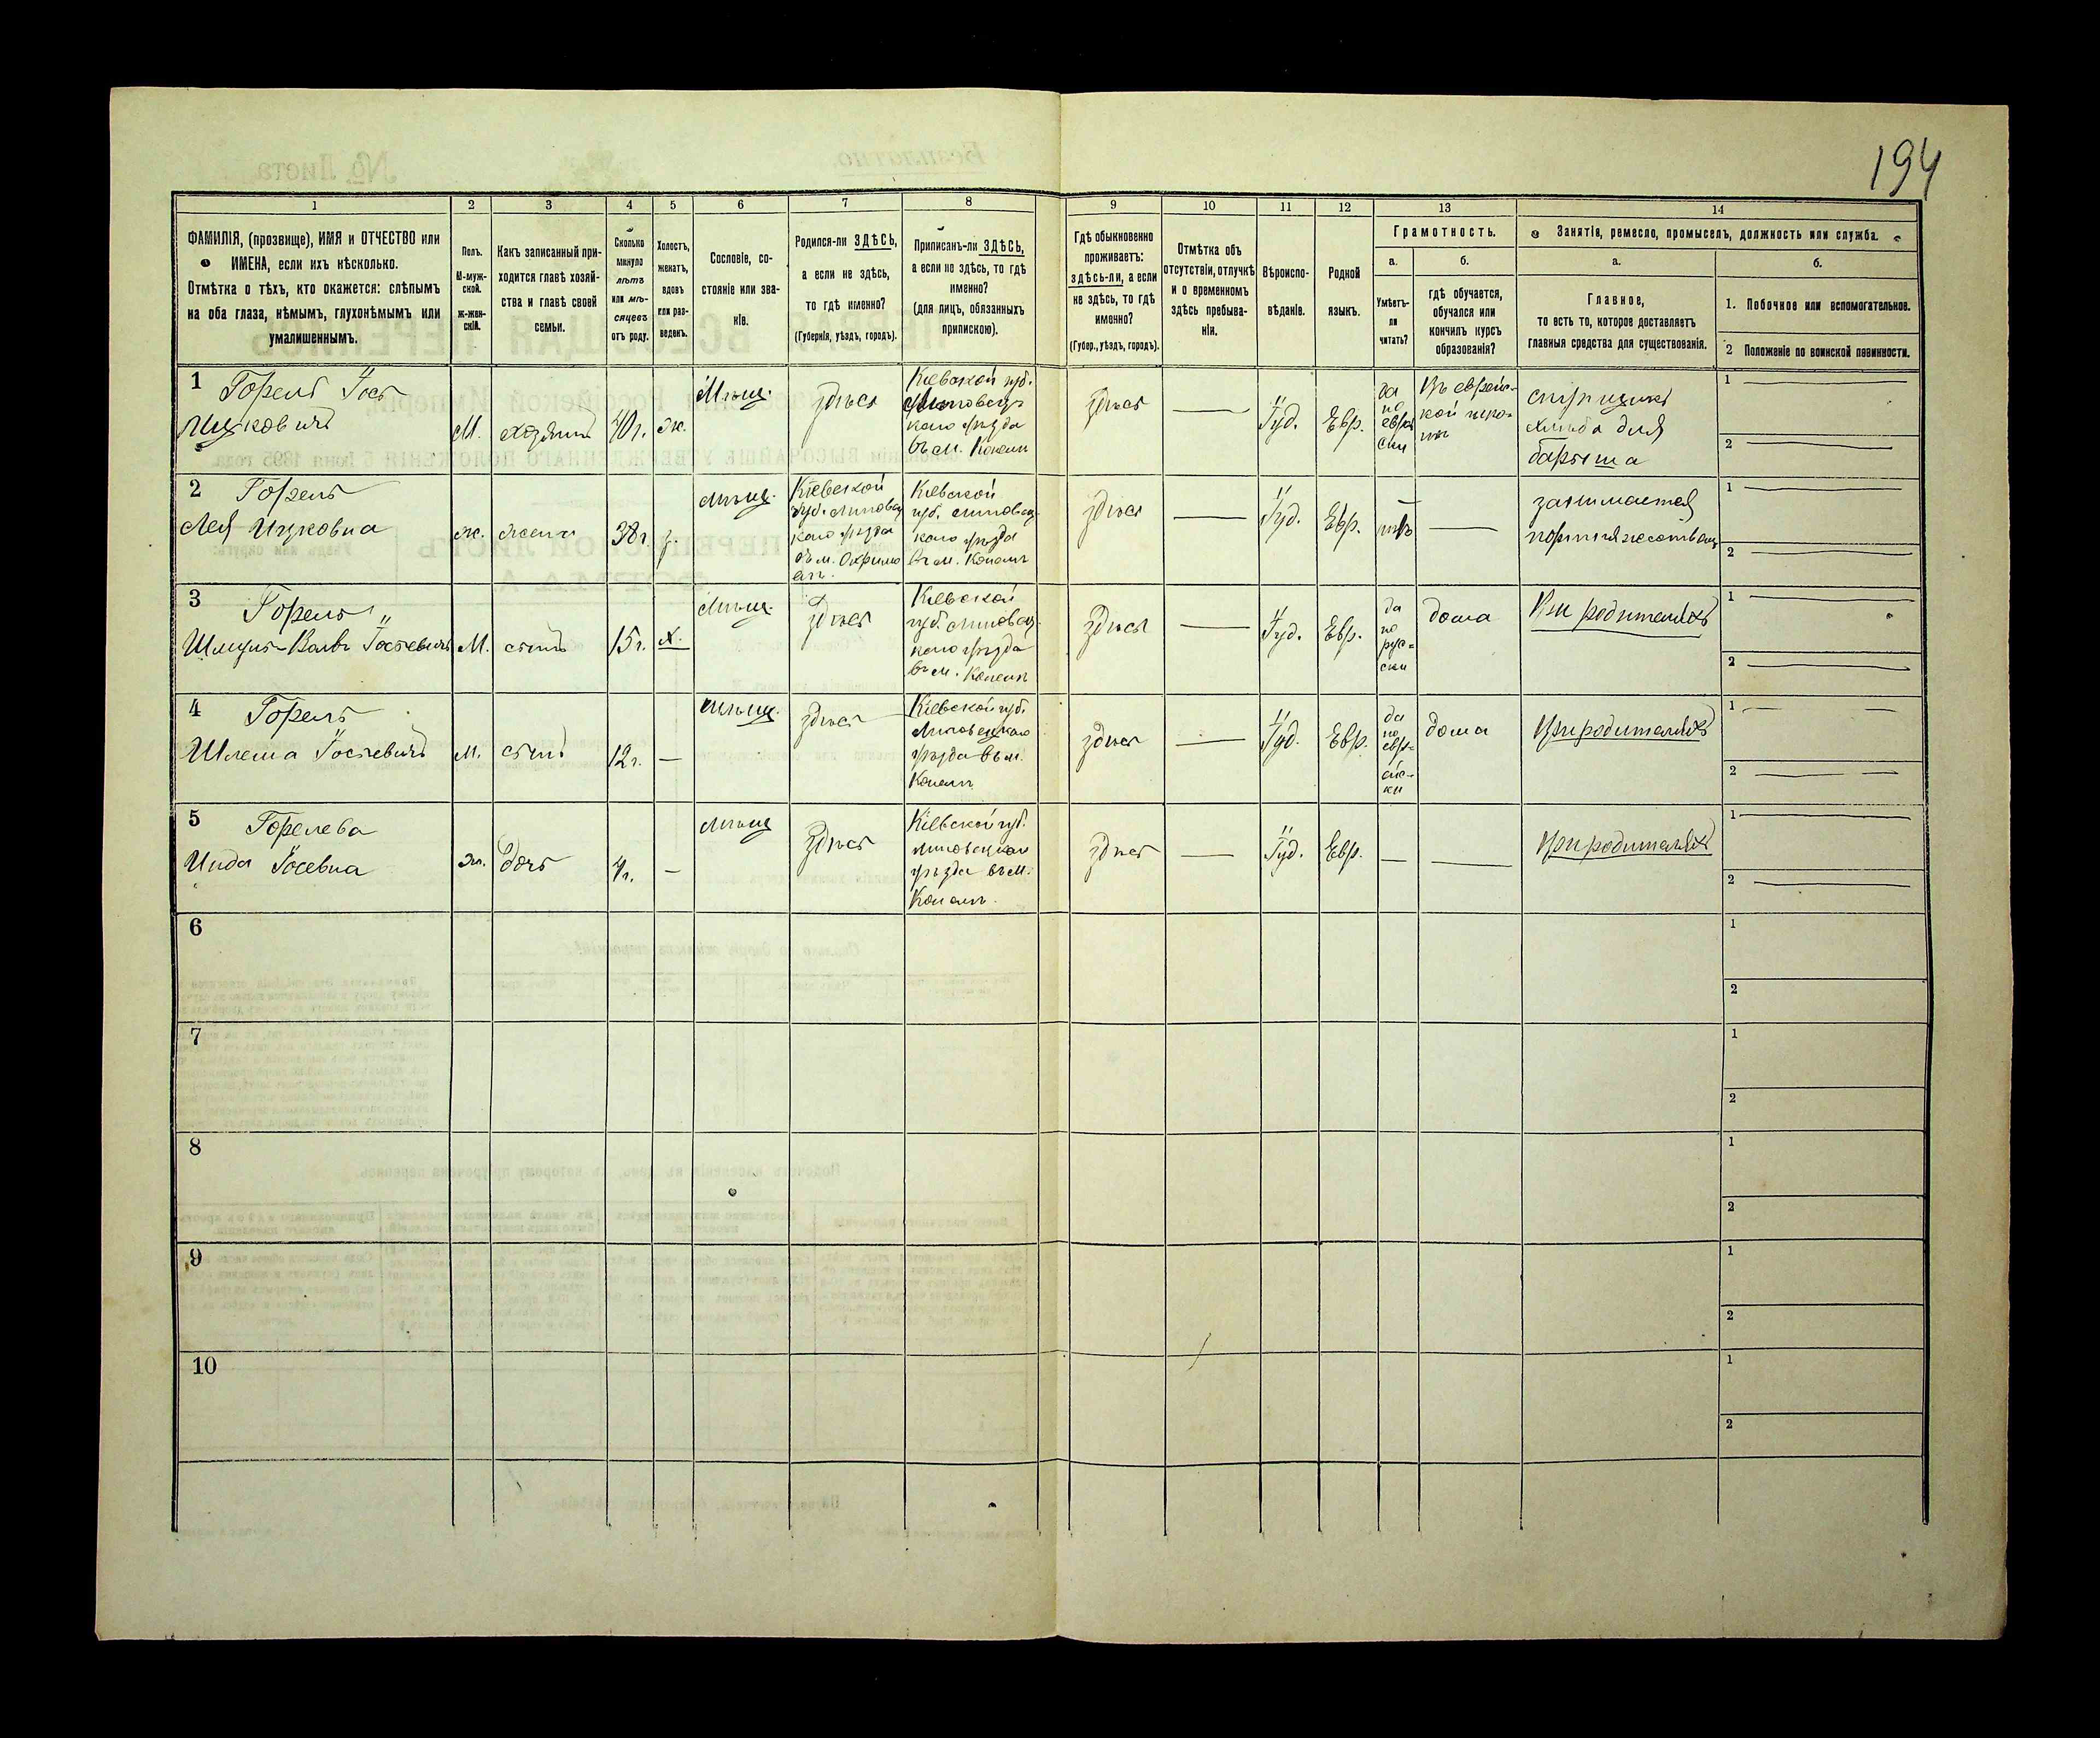 194
1
2
3
4
5
6
7
8
9
10
11
12
13
14
ФАМИЛІЯ, (прозвище), ИМЯ и ОТЧЕСТВО или
ИМЕНА, если ихъ нѣсколько.
Отмѣтка о тѣхъ, кто окажется: слѣпымъ
на оба глаза, нѣмымъ, глухонѣмымъ или
умалишеннымъ.
Полъ.
М-муж-
ской.
Ж-жен-
скій.
Какъ записанный при-
ходится главѣ хозяй-
ства и главѣ своей
семьи.
Сколько
минуло
лѣтъ
или мѣ-
сяцевъ
отъ роду.
Холостъ,
женатъ,
вдовъ
или раз-
веденъ.
Сословіе, со-
стояніе или зва-
ніе.
Родился-ли ЗДѢСЬ,
а если не здѣсь,
то гдѣ именно?
(Губернія, уѣздъ, городъ).
Приписанъ-ли ЗДѢСЬ,
а если не здѣсь, то гдѣ
именно?
(для лицъ, обязанныхъ
припискою).
Гдѣ обыкновенно
проживаетъ:
здѣсь-ли, а если
не здѣсь, то гдѣ
именно?
(Губер., уѣздъ, городъ).
Отмѣтка объ
отсутствіи, отлучкѣ
и о временномъ
здѣсь пребыва-
ніи.
Вѣроиспо-
вѣданіе.
Родной
языкъ.
Грамотность.
а.
Умѣетъ-
ли
читать?
б.
гдѣ обучается,
обучался или
кончилъ курсъ
образованія?
Занятія, ремесло, промыселъ, должность или служба.
а.
Главное,
то есть то, которое доставляетъ
главныя средства для существованія.
б.
1. Побочное или вспомогательное.
2 Положеніе по воинской повинности.
1 Горель Іось
Ицковичъ
М.
хозяинъ
40 г.
ж.
Мѣщ.
здѣсь
Кіевской губ.
Липовец-
каго уѣзда
въ м.
здѣсь
Іуд.
Евр.
да
по
Въ еврейс-
кой
хлѣба для
барыша
1
2
2 Горель
Лея Ицковна
ж.
жена
38 г.
мѣщ.
Кіевской
губ. Липовец
каго уѣзда
въ м.
Кіевской
губ. Липовец-
каго уѣзда
въ м.
здѣсь
Іуд.
Евр.
занимается
1
2
3 Горель
Іосьевичъ
М.
сынъ
15 г.
х.
мѣщ.
здѣсь
Кіевской
губ. Липовец-
каго уѣзда
въ м.
здѣсь
Іуд.
Евр.
да
по
рус-
ски
дома
При родителяхъ
1
2
4 Горель
Шлема Іосьевичъ
М.
сынъ
12 г.
мѣщ.
здѣсь
Кіевской губ.
Липовецкаго
уѣзда въ м.
здѣсь
Іуд.
Евр.
да
по
евр-
ейс-
ки
дома
При родителяхъ
1
2
5 Горелева
Инда Іосевна
ж.
дочь
4 г.
мѣщ
здѣсь
Кіевской губ.
Липовецкаго
уѣзда въ м.
здѣсь
Іуд.
Евр.
При родителяхъ
1
2
6
1
2
7
1
2
8
1
2
9
1
2
10
1
2